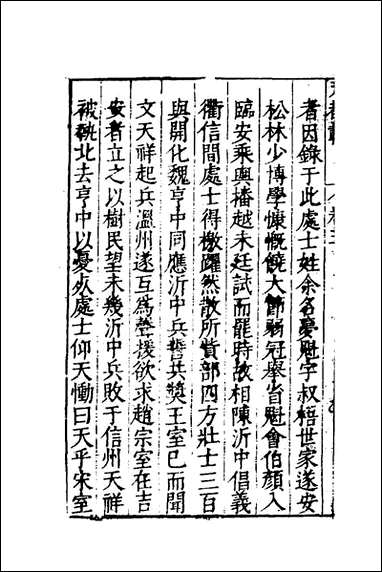 者因錄于此處士姓余名夢魁字叔梧世家遂安
松林少博學慷慨饒大節弱冠舉省魁會伯顏入
臨安乘輿播越未廷試而罷時故相陳沂中倡義
衢信間處士得檄躍然散所貲部四方壯士三百
與開化魏亨中同應沂中兵誓共奬王室已而聞
文天祥起兵溫州遂互爲聲援欲求趙宗室在吉
安者立之以樹民望未幾沂中兵敗于信州天祥
被執北去亨中以憂死處士仰天慟曰天乎宋室